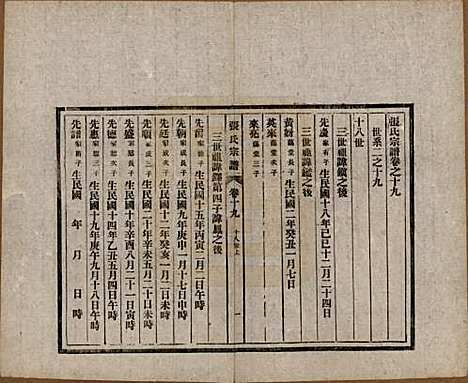 張氏宗譜卷之十九
世系二之十九
十八世
三世祖諱鑑之後
先進 生民國十八年己巳十二月二十四日
三世祖諱鑑之後
黃 蘊堂長子 生民國二年癸丑一月七日
英來 蘊堂次子
來亮 蘊堂三子
張氏宗譜 卷十九 十八世上 一
三世祖諱鐸第四子諱鳳之後
先 家成子 生民國十五年丙寅二月二日午時
先朝 家成次子 生民國十九年庚申一月十七日申時
先廷 家成子 生民國十二年癸亥一月二日未時
先順 家成子 生民國二十年辛未五月二十日未時
先盛 家 子 生民國十年辛酉八月二十一日寅時
先德 家 次子 生民國十四年乙丑五月四日午時
先惠 家德三子 生民國十九年庚午九月十八日午時
先譜 家 子 生民國 年 月 日 時